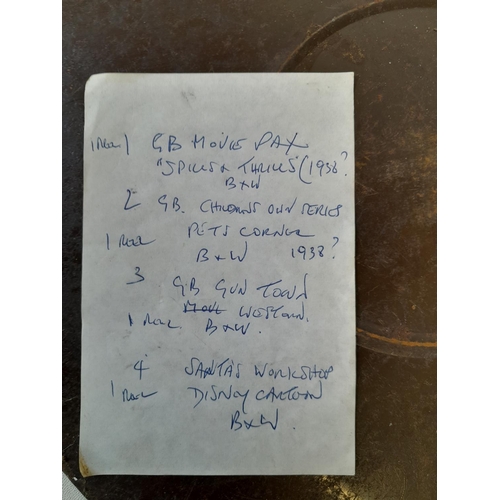 1 Reel 1 GB MOVIE PAX
"SPILLS & THRILLS" (1938?
B&W
2 GB. CHILDRENS OWN SERIES
1 Reel PETS CORNER
B&W 1938?
3 GB GUN TOWN
WESTERN.
1 Reel B&W.
4 SANTA'S WORKSHOP
1 Reel DISNEY CARTOON
B&W.